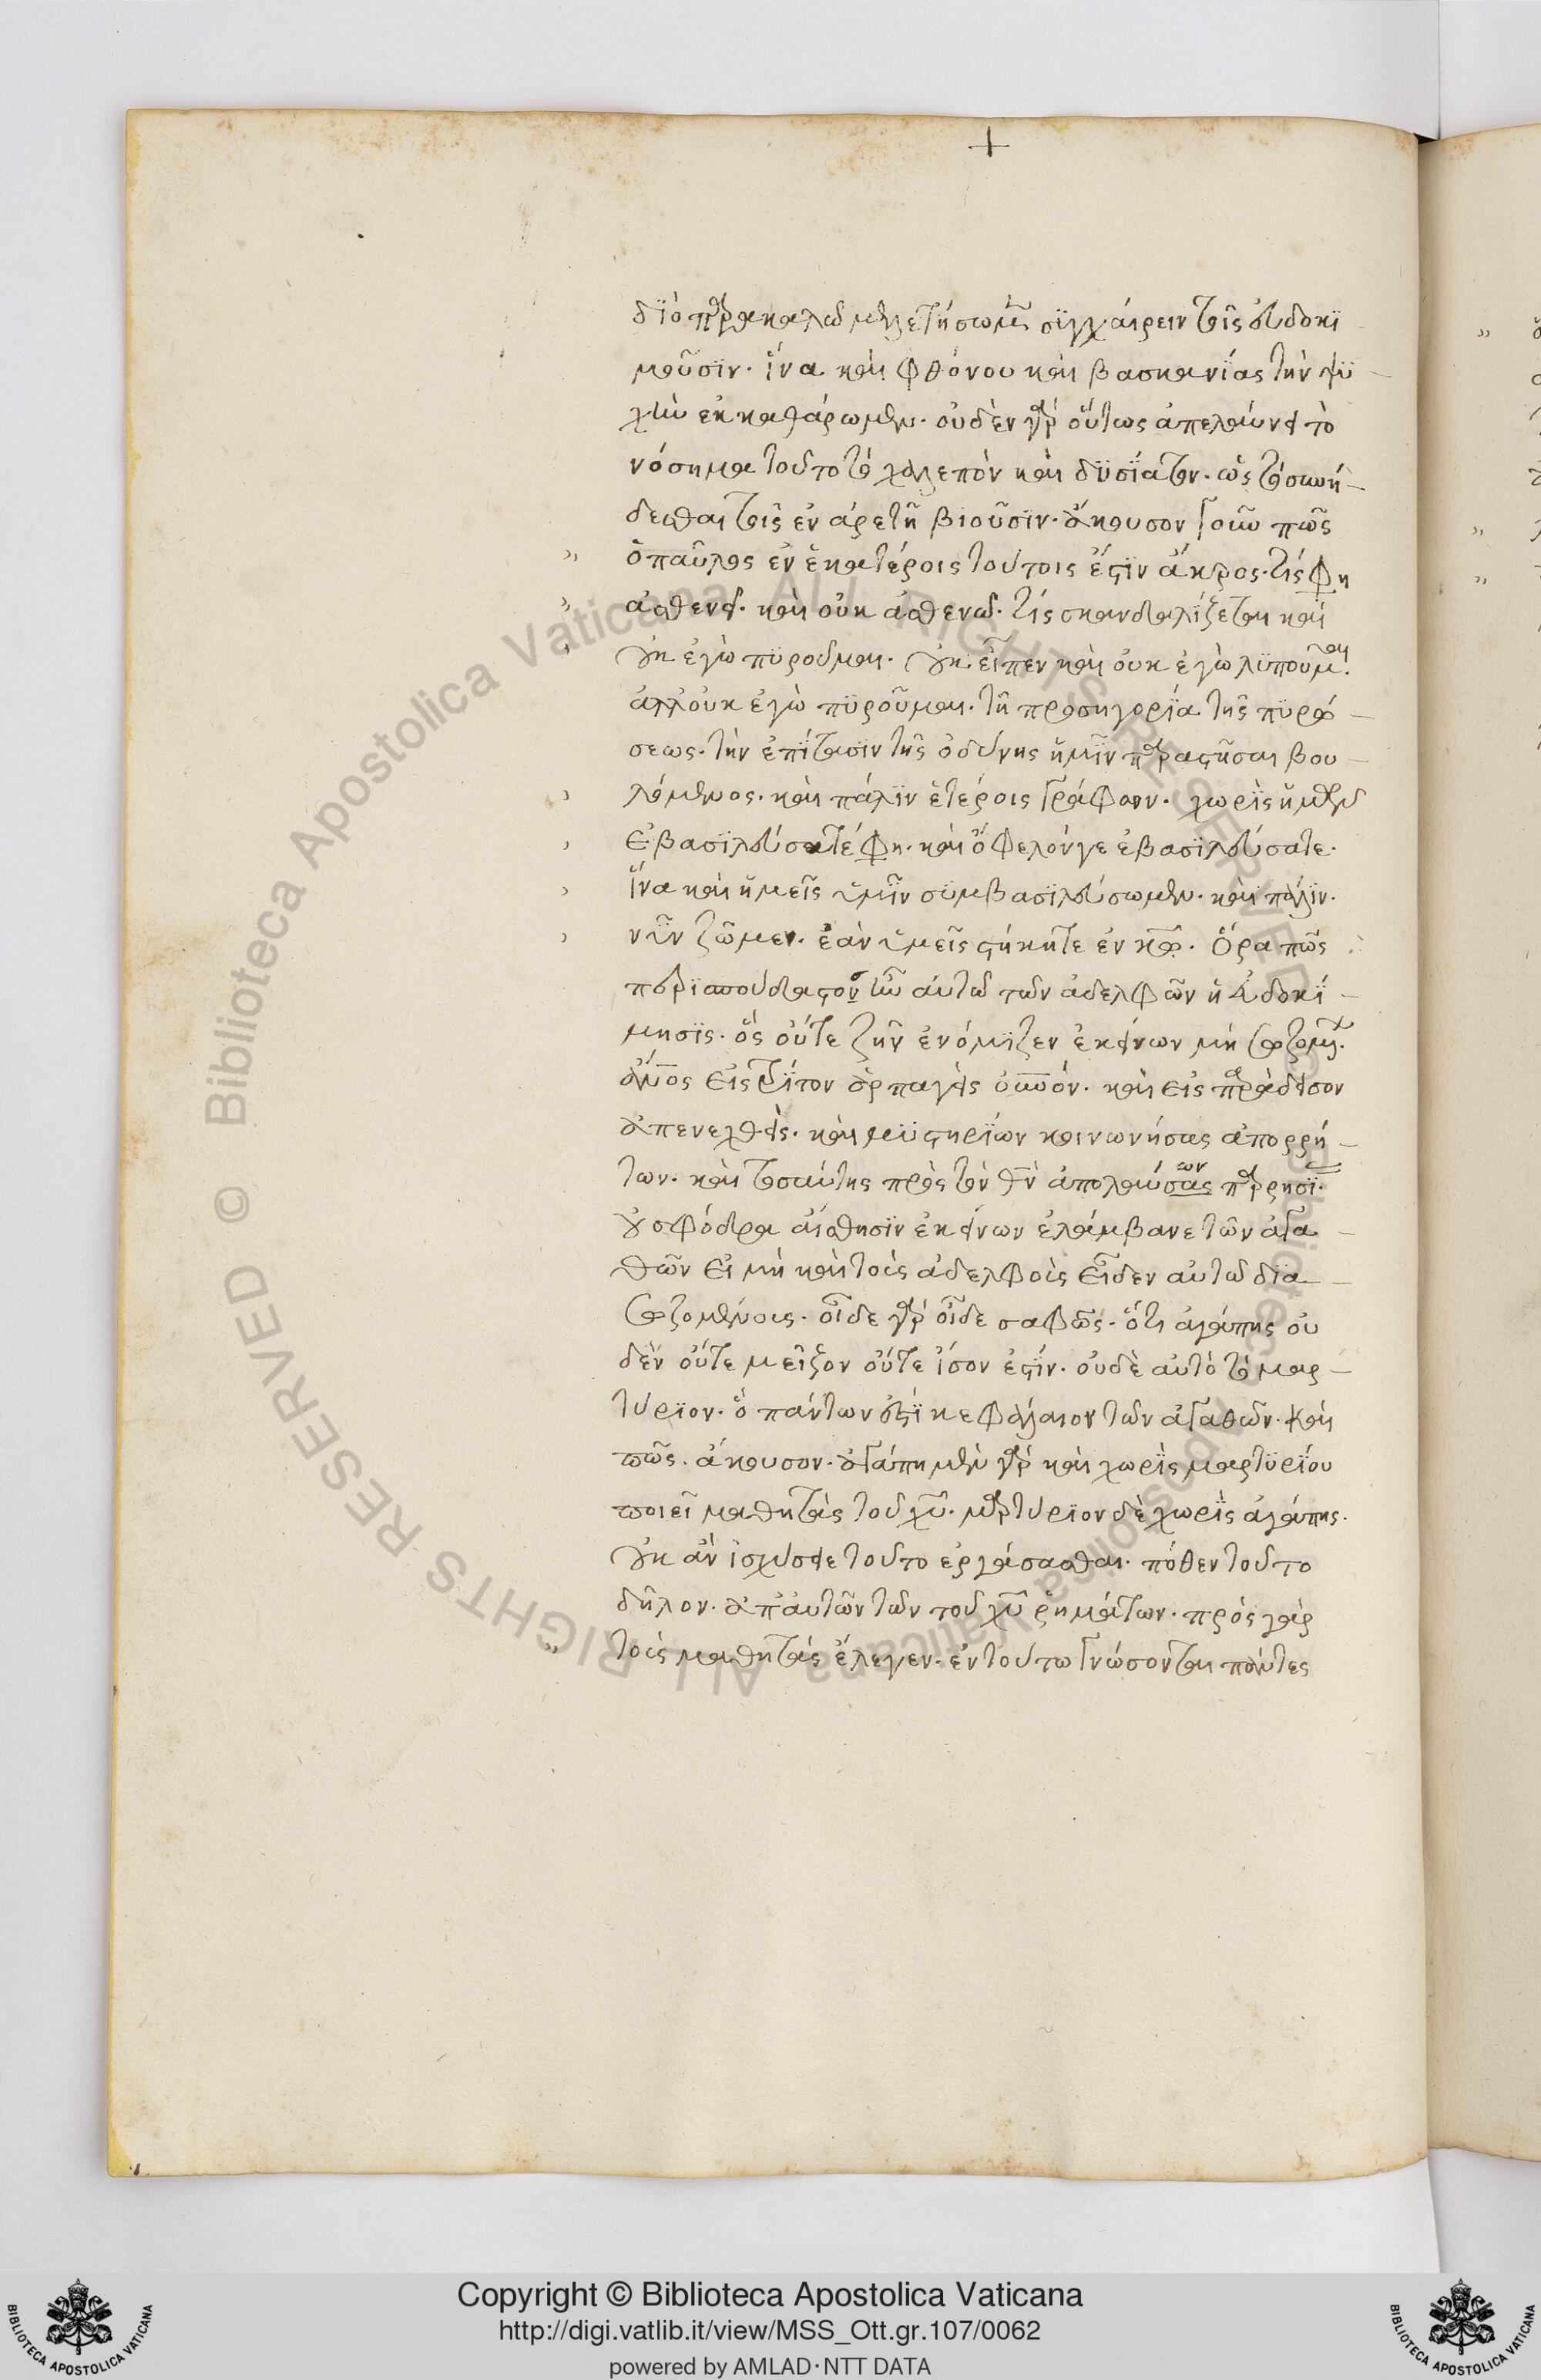 +
δϊὸ παρακαλῶ μελετήσωμεν συγχαίρειν τοῖς εὐδοκϊ
μοῦσϊν. ἵνα καὶ φθόνου καὶ βασκανίας τὴν ψϋ
χὴν ἐκκαθάρωμεν. οὐδὲν γὰρ οὕτως ἀπελαύνει τὸ
νόσημα τοῦτο τὸ χαλεπὸν καὶ δϋσΐατον. ὡς τὸ συνή
δεσθαι τοῖς ἐν ἀρετῇ βιοῦσϊν. ἄκουσον γοῦν πῶς
ὁ παῦλος ἐν ἑκατέροις τούτοις ἐστϊν ἄκρος. τίς φη
ἀσθενεῖ. καὶ οὐκ ἀσθενῶ. τίς σκανδαλίζεται καὶ
οὐκ ἐγὼ πϋροῦμαι. οὐκ εἶπεν καὶ οὐκ ἐγὼ λϋποῦμαι.
ἀλλ' οὐκ ἐγὼ πϋροῦμαι. τῇ προσηγορίᾳ τῆς πϋρώ
σεως. τὴν ἐπίτασϊν τῆς ὀδύνης ἡμῖν παραστῆσαι βου
λόμενος. καὶ πάλϊν ἑτέροις γράφων. χωρὶς ἡμῶν
ἐβασϊλεύσατέ φη. καὶ ὄφελόν γε ἐβασϊλεύσατε.
ἵνα καὶ ἡμεῖς ὑμῖν σϋμβασϊλεύσωμεν. καὶ πάλϊν.
νῦν ζῶμεν. ἐὰν ὑμεῖς στήκητε ἐν κω. Ὅρα πῶς
περϊσπούδαστος ἦν αὐτῷ τῶν ἀδελφῶν ἡ εὐδοκΐ
μησϊς. ὅς οὔτε ζῆν ἐνόμϊζεν ἐκείνων μὴ σωζομένων.
οὗτος εἰς τρίτον ἁρπαγεὶς οὐνον. καὶ εἰς παράδεισον
ἀπενεχθεὶς. καὶ μϋστηρϊων κοινωνήσας ἀπορρή
των. καὶ τοσαύτης πρὸς τὸν θν ἀπολαύσας παρρησΐας.
οὐ σφόδρα αἴσθησϊν ἐκείνων ἐλάμβανε τῶν ἀγα
θῶν εἰ μὴ καὶ τοὺς ἀδελφοὺς εἶδεν αὐτῷ δϊα
σωζομένους. οἶδε γὰρ οἶδε σαφῶς. ὅτι ἀγάπης οὐ
δὲν οὔτε μεῖζον οὔτε ἴσον ἐστΐν. οὐδὲ αὐτὸ τὸ μαρ
τύρϊον. ὃ πάντων ἐστὶ κεφάλαιον τῶν ἀγαθῶν. καὶ
πῶς. ἄκουσον. ἀγάπη μὲν γὰρ καὶ χωρὶς μαρτϋρΐου
ποιεῖ μαθητὰς τοῦ χυ. μαρτύρϊον δὲ χωρὶς ἀγάπης.
οὐκ ἂν ἰσχύσειε τοῦτο ἐργάσασθαι. πόθεν τοῦτο
δῆλον. ἀπ' αὐτῶν τῶν τοῦ χυ ῥημάτων. πρὸς γὰρ
τοὺς μαθητὰς ἔλεγεν. ἐν τούτῳ γνώσονται πάντες
Copyright © Biblioteca Apostolica Vaticana
http://digi.vatlib.it/view/MSS_Ott.gr.107/0062
powered by AMLAD·NTT DATA